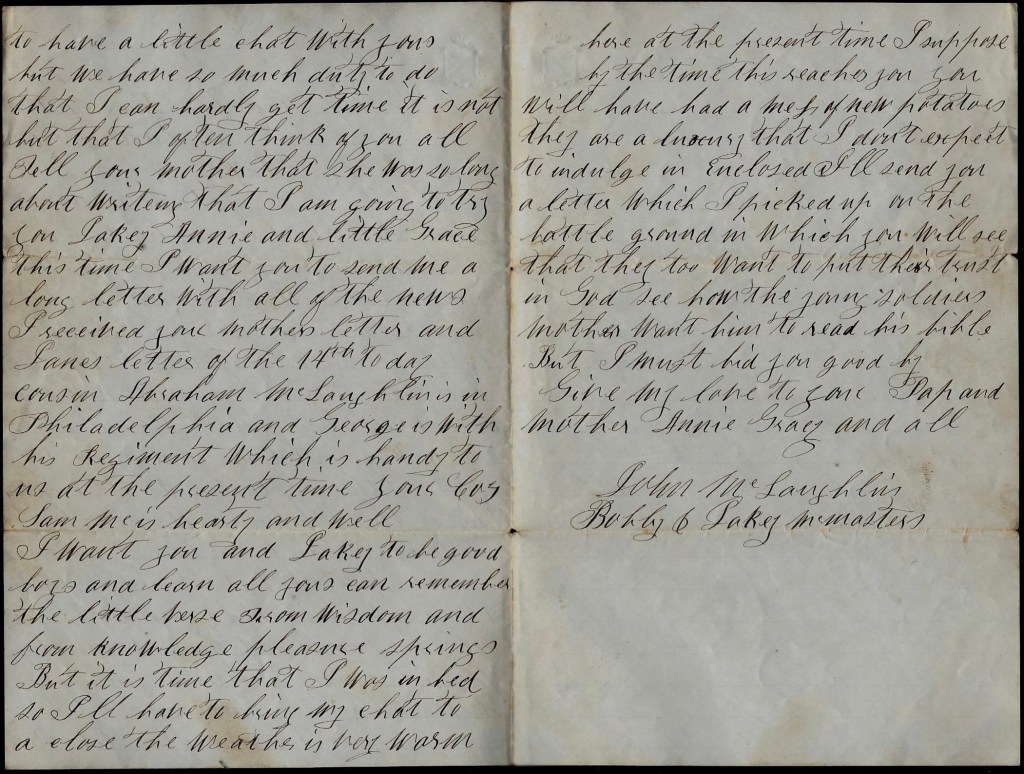 to have a little chat with yous
but we have so much duty to do
that I can hardly get time it is not
but that I often think of you all
Tell your mother that she was so long
about writeng that I am going to try
you Jakey Annie and little Grace
this time I want you to send me a
long letter with all of the news
I received your mothers letter and
Janes letter of the 14th to day
cousin Abraham McLaughlin is in
Philadelphia and George is with
his Regiment which is handy to
us at the present time your
Sam Mc is hearty and well
I want you and Jakey to be good
boys and learn all yous can remember
the little verse From wisdom and
from knowledge pleasure springs
But it is time that I was in bed
so I'll have to bring my chat to
a close the weather is very warm
here at the present time I suppose
by the time this reaches you you
will have had a mess of new potatoes
they are a luxury that I don't expect
to indulge in Enclosed I'll send you
a letter which I picked up on the
battle ground in which you will see
that they too want to put their trust
in God see how the young soldiers
mother want him to read his bible
But I must bid you good by
Give my love to your Pap and
mother Annie Gracy and all
John McLaughlin
Bobby & Jakey McMasters